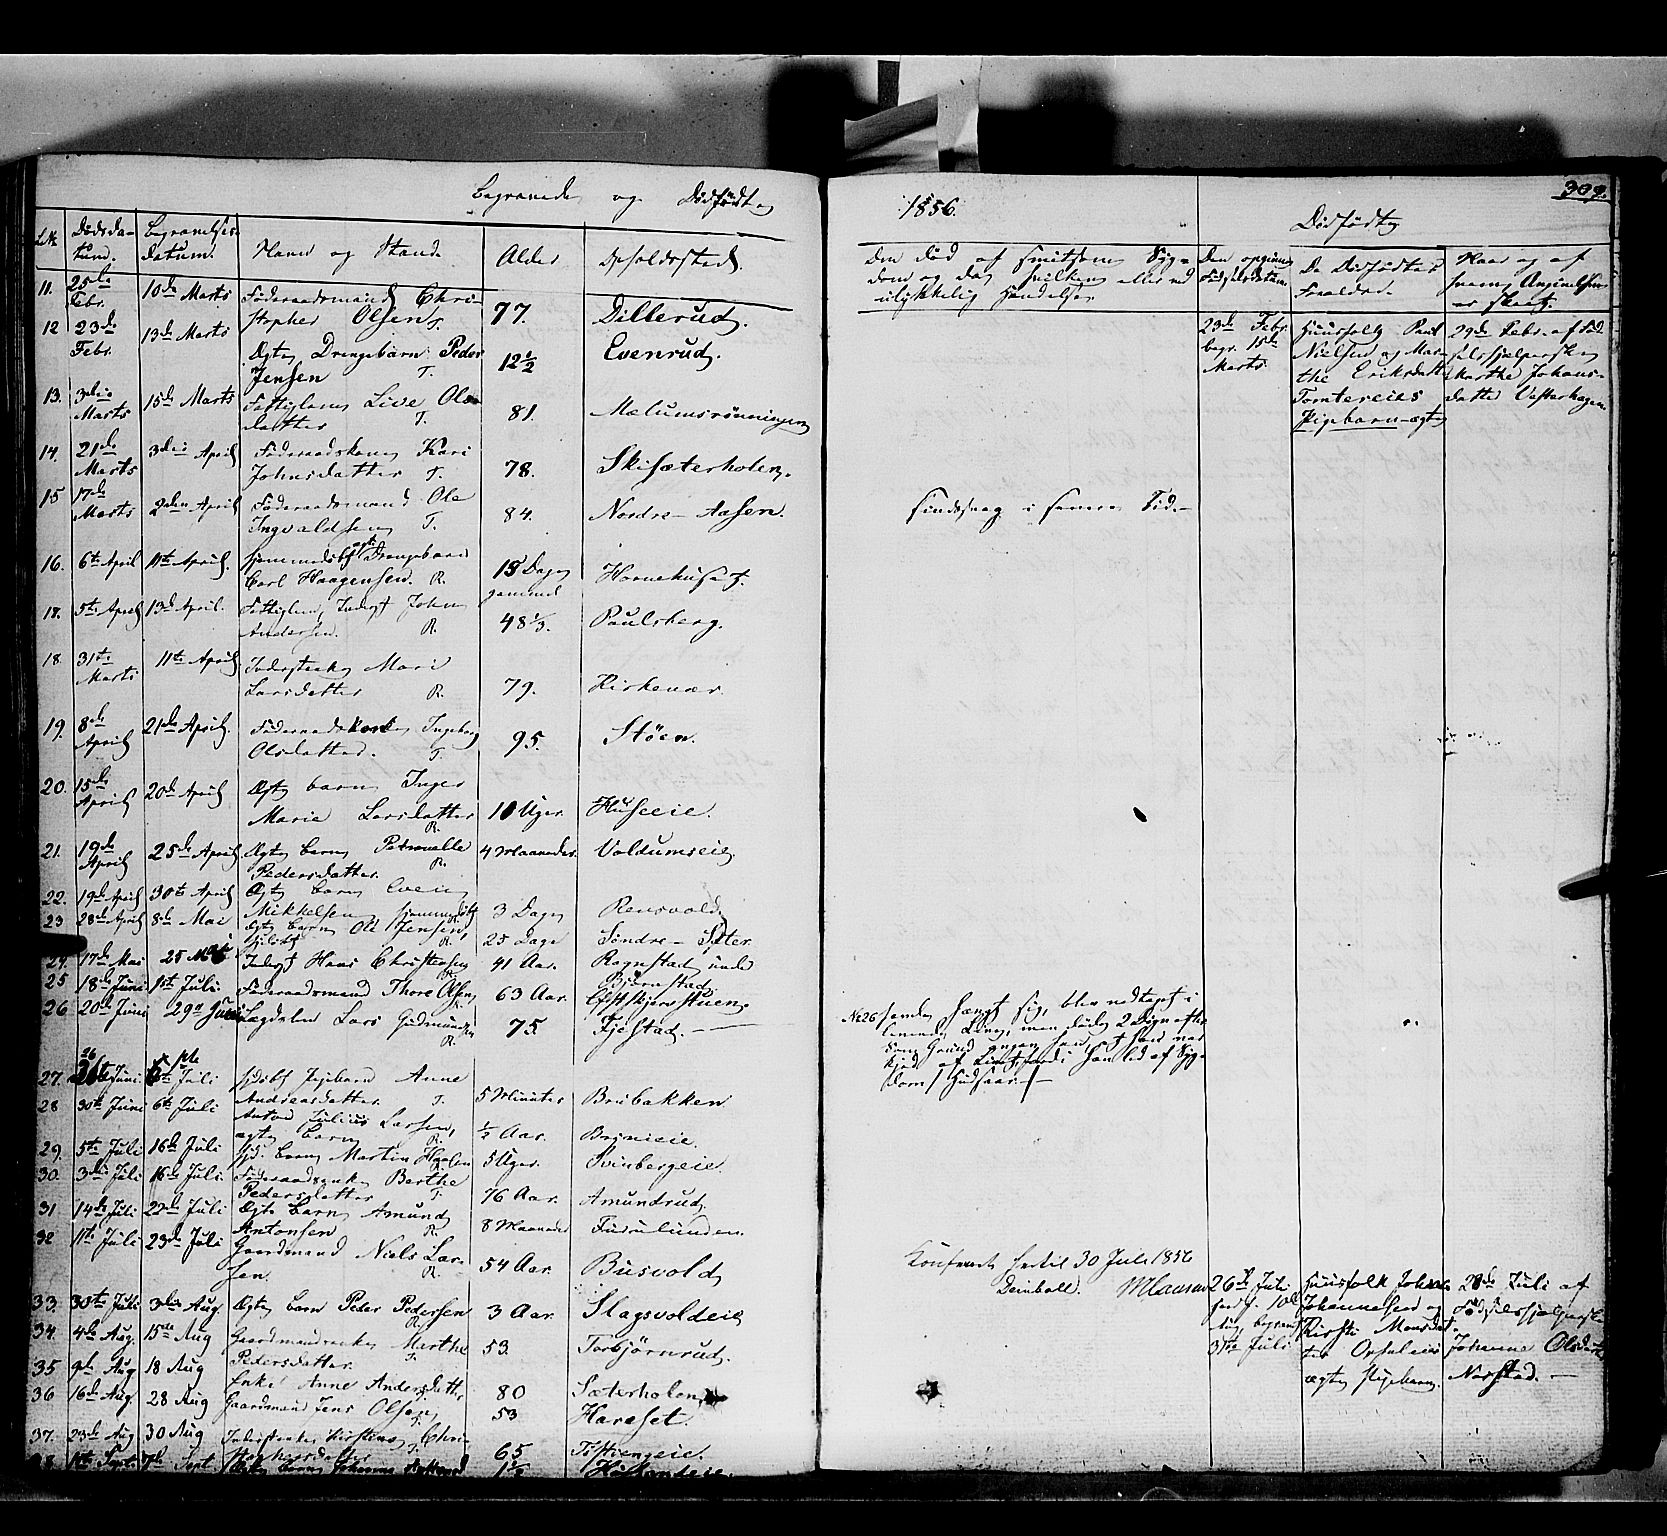 Begravede og Dødfødte
Dødsda-
tum.
Begravelses-
datum.
Navn og Stand.
Alder
Opholdssted.
11. 25de Febr. 10de Marts Føderaadsmand Chri-
stopher Olsen 77. Dillerud.
12 23de Febr. 13de Marts Ægte Drengebarn Peder
Jensen T. 12 1/2 Evenrud.
13. 3die Marts 15de Marts Fattiglem Live Ols-
datter T. 81. Mælumsrønningen
14. 21de Marts 3die April Føderaadskone Kari
Johnsdatter T. 78. Skisæterholen.
15 17de Marts 2den April Føderaadsmand Ole
Ingvaldsen T. 84. Nordre-Aasen.
16. 6te April 11te April. hjemmedøbt ægte Drengebarn
Carl Haagensen. R. 15 Dage gammel Hornehuset.
18. 5te April 13de April. Fattiglem, Inderst John
Andersen. R. 48 1/3. Paulsberg.
18. 31te Marts 11te April Inderstenke Mari
Larsdatter R. 79. Kirkenær.
19. 8de April 21de April. Føderaadskone Ingeborg
Olsdatter. T. 95. Støen.
20. 15de April 20de April Ægte barn Inger
Marie Larsdatter R. 10 Uger. Huseeie.
21. 19de April 25de April Ægte Barn Petronelle
Pedersdatter. R. 4 Maaneder. Voldumseie
22. 19de April 30te April Ægte Barn Even
Mikkelsen hjemmedøbt R. 3 Dage Rensvold.
23 28de April 8de Mai Ægte Barn Ole Jensen,
hjdøbt R. 25 Dage Søndre-Sæter
24. 17de Mai 25 Mai Inderst Hans Christensen R. 41 Aar. Rognstad under
Bjørnstad.
25 18de Juni 1ste Juli Føderaadsmand Thore Olsen 63 Aar.
26 20de Juni 29de Juni Lægdslem Lars Gudmundsen
R. 75. Fjestad.
27. 26te Juni 5te Juli hjdøbt Pigebarn Anne
Andreasdatter T. 5 Minuter Brubakken.
28 30te Juni 6te Juli Anton Julius Larsen,
ægte Barn R. 1/2 Aar. Brynieie.
29. 5te Juli 16de Juli Barn Martin 5 Uger. Svinbergeie.
30. 3die Juli 16de Juli. Føderaadsenke Berthe
Pedersdatter T. 76 Aar. Amundrud.
31 14de Juli 22de Juli Ægte Barn Amund
Antonsen R. 8 Maaneder Furulunden.
32 11te Juli 23de Juli Gaardmand Niels Lar-
sen. R. 54 Aar. Busvold
33. 30te Juli 3die Aug. Ægte Barn Peder Pedersen R. 3 Aar. Slagsvoldeie
34. 4de Aug. 15de Aug Gaardmandsenke Marthe
Pedersdatter. T. 53. Torbjørnrud.
35 9de Aug 18 Aug Enke Anne Andersdatter 80 Sæterholen
36 16de Aug. 28 Aug Gaardmand Jens Olsen T. 53 Haraset.
37. 23de Aug 30 Aug Inderstenke Kirstine Chri-
65
1ste Sept. 7de Sept Ægte Barn 1 1/2
1856.
309.
Dødfødte
Om død af smitsom Syg-
dom og da hvilken eller ved
ulykkelig Hændelse
Den opgivne
Fødselsdatum.
De Dødfødtes
Forældre.
Naar og af
hvem Anmeldelsen
er skeet.
23de Febr.
begr. 15de
Marts.
Huusfolk Paul
Nielsen og Mar-
the Eriksdatter
Tomtereies
Pigebarn - ægte
29de Febr. af Fød-
selshjelperske
Marthe Johans-
datter Vesterhagen.
Sindssvag i senere Tid.-
No 26 hængt sig, blev nedtaget i
levende Live, men døde 2 Døgn efter
Konfereret hertil 30 Juli 1856
Deinboll. M Laurson
26de Juli
10de
Aug. begravet
31te Juli
Huusfolk Johan
Johannesen og
Kirsti Monsdat-
ter
ægte Pigebarn.
28de Juli af
Fødselshjelperske
Johanne Olsdatter
Norstad. —